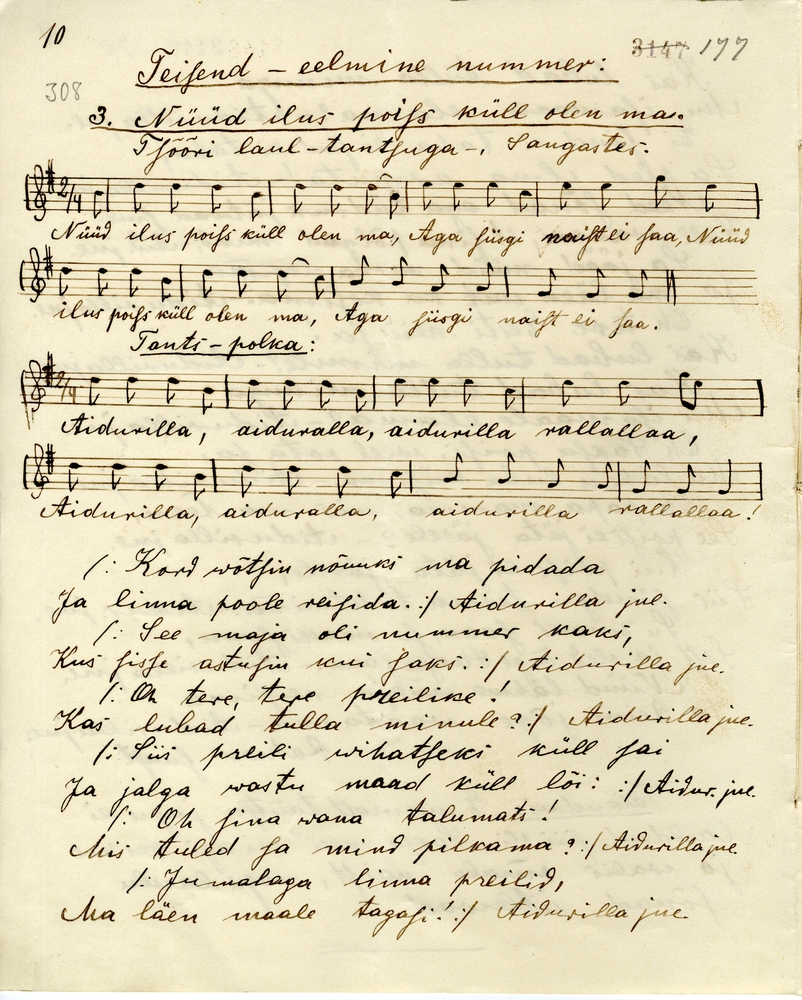 10
3147 177
308
Teisend – eelmine nummer:
3. Nüüd ilus poiſs küll olen ma.
Tſõõri laul-tantſuga-, Sangastes.
2/4
Nüüd ilus poiſs küll olen ma, Aga ſiisgi naiſt ei ſaa, Nüüd
ilus poiſs küll olen ma, Aga ſiisgi naiſt ei ſaa.
Tants-polka:
2/4
Aidurilla, aiduralla, aidurilla rallallaa,
Aidurilla, aiduralla, aidurilla rallallaa!
/: Kord wõtſin nõuuks ma pidada
Ja linna poole reiſida. :/ Aidurilla jne.
/: See maja oli nummer kaks,
Kus ſiſſe astuſin kui ſaks. :/ Aidurilla jne.
/: Oh tere, tere preilike!
Kas lubad tulla minule? :/ Aidurilla jne.
/: Siis preili wihatſeks küll ſai
Ja jalga wastu maad küll lõi: :/ Aidur. jne.
/: Oh ſina wana talumats!
Mis tuled ſa mind pilkama? :/ Aidurilla jne.
/: Jumalaga linna preilid,
Ma läen maale tagaſi! :/ Aidurilla jne.